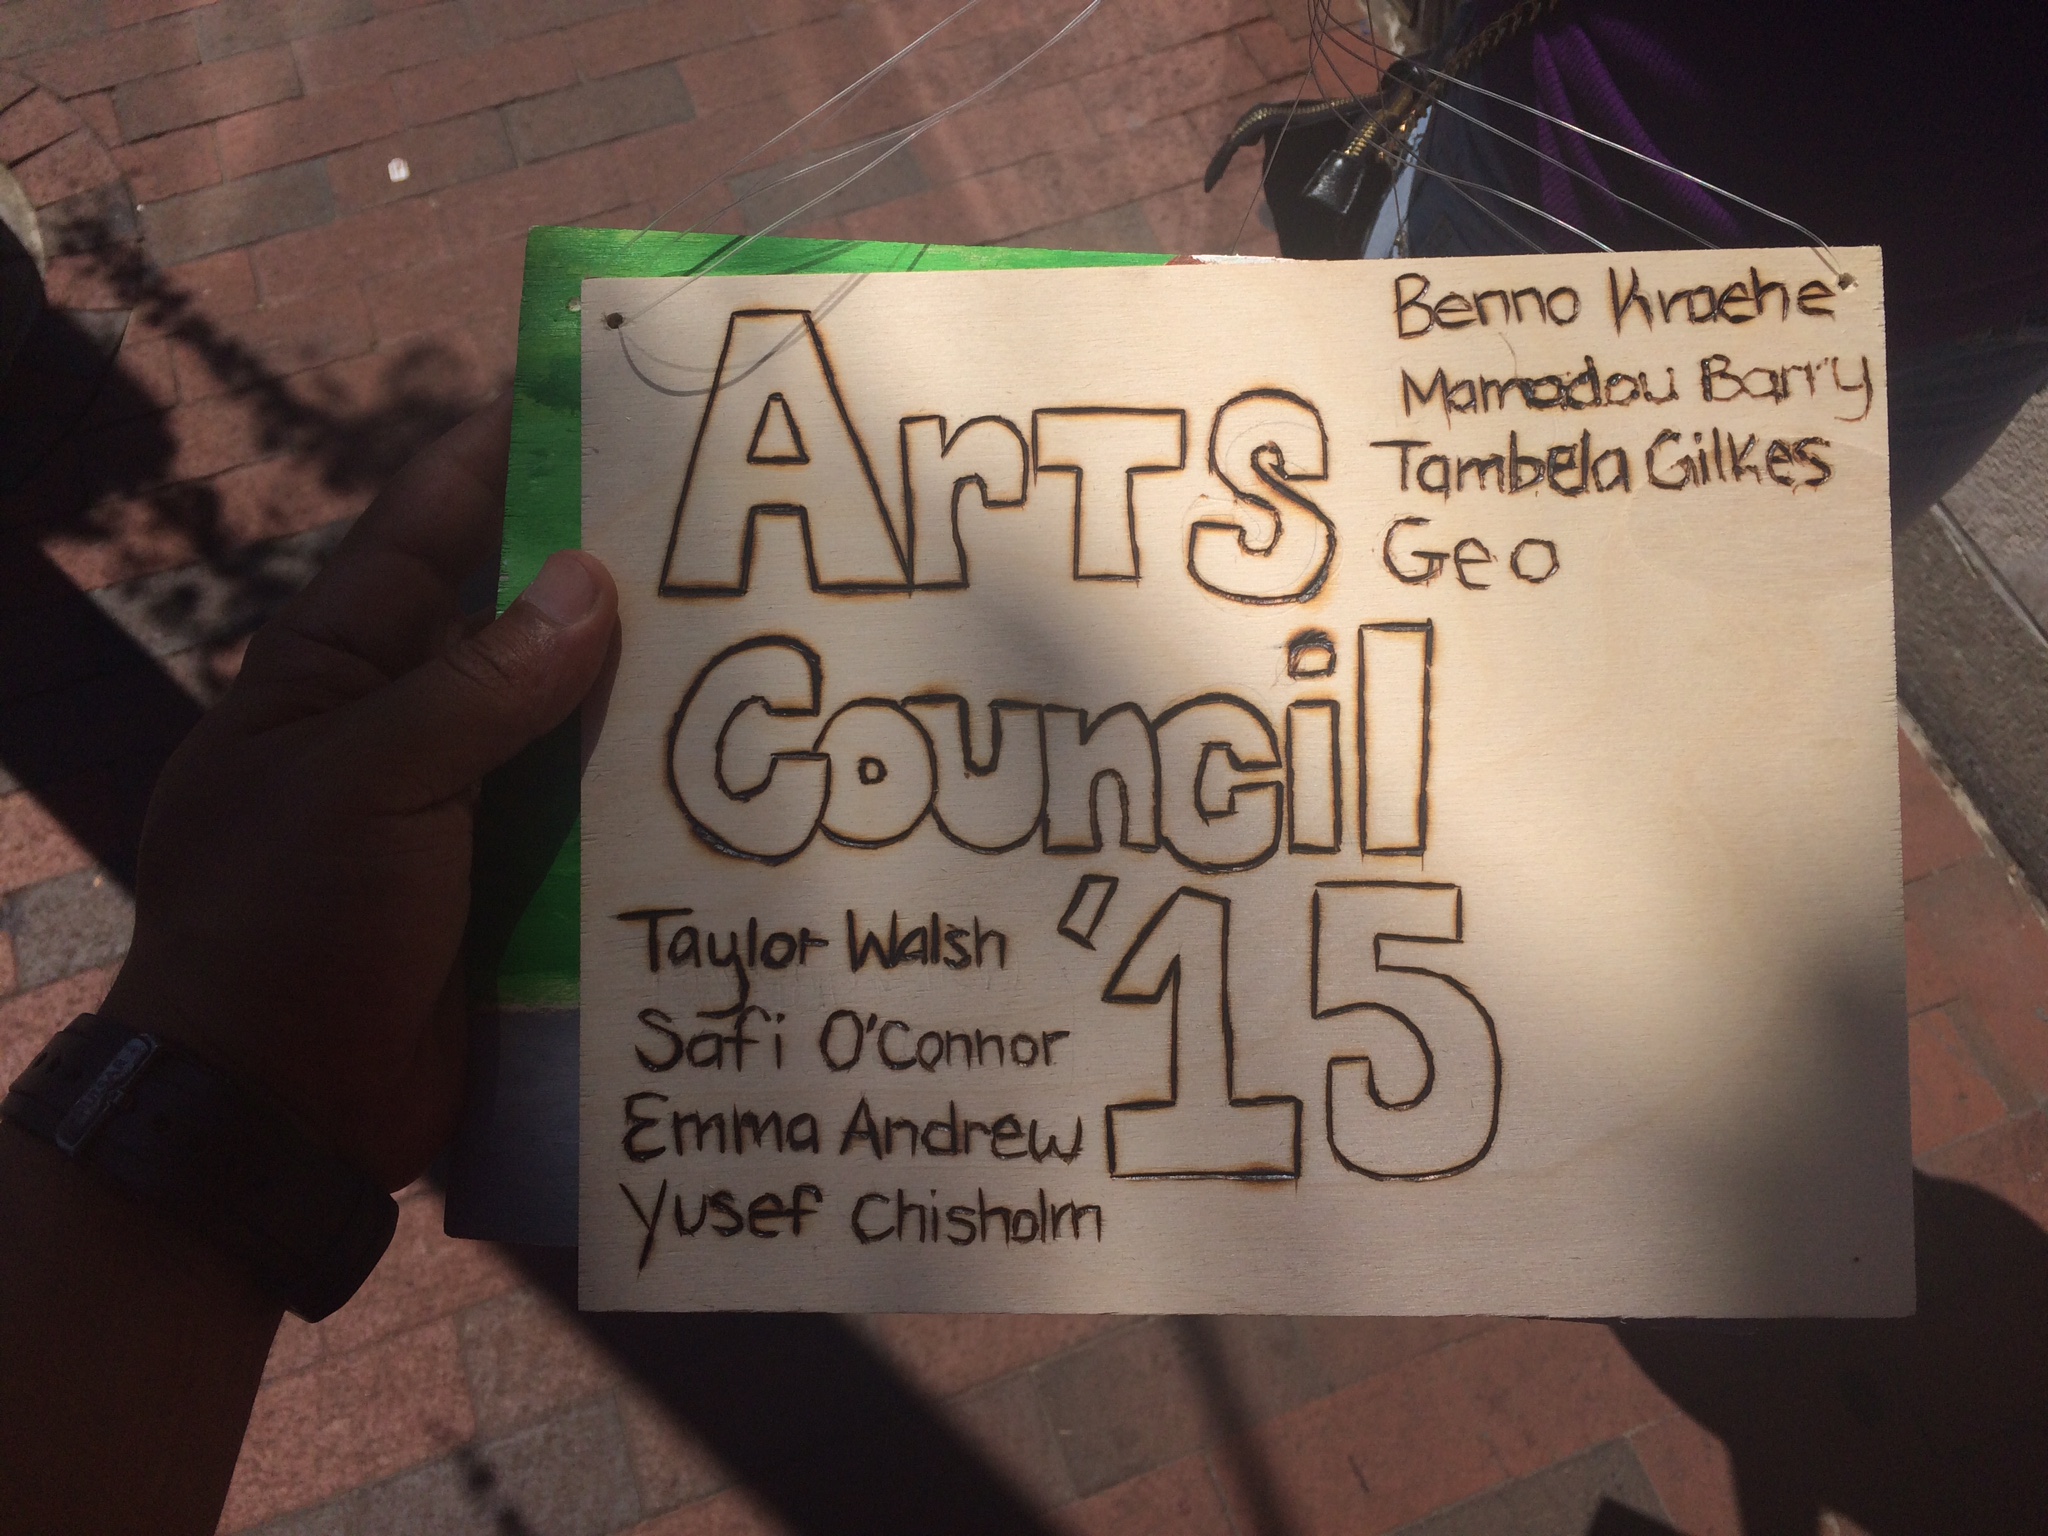 Arts
Council
'15
Benno Kraehe
Mamadou Barry
Tambela Gilkes
Geo
Taylor Walsh
Safi O'Connor
Emma Andrew
Yusef Chisholm